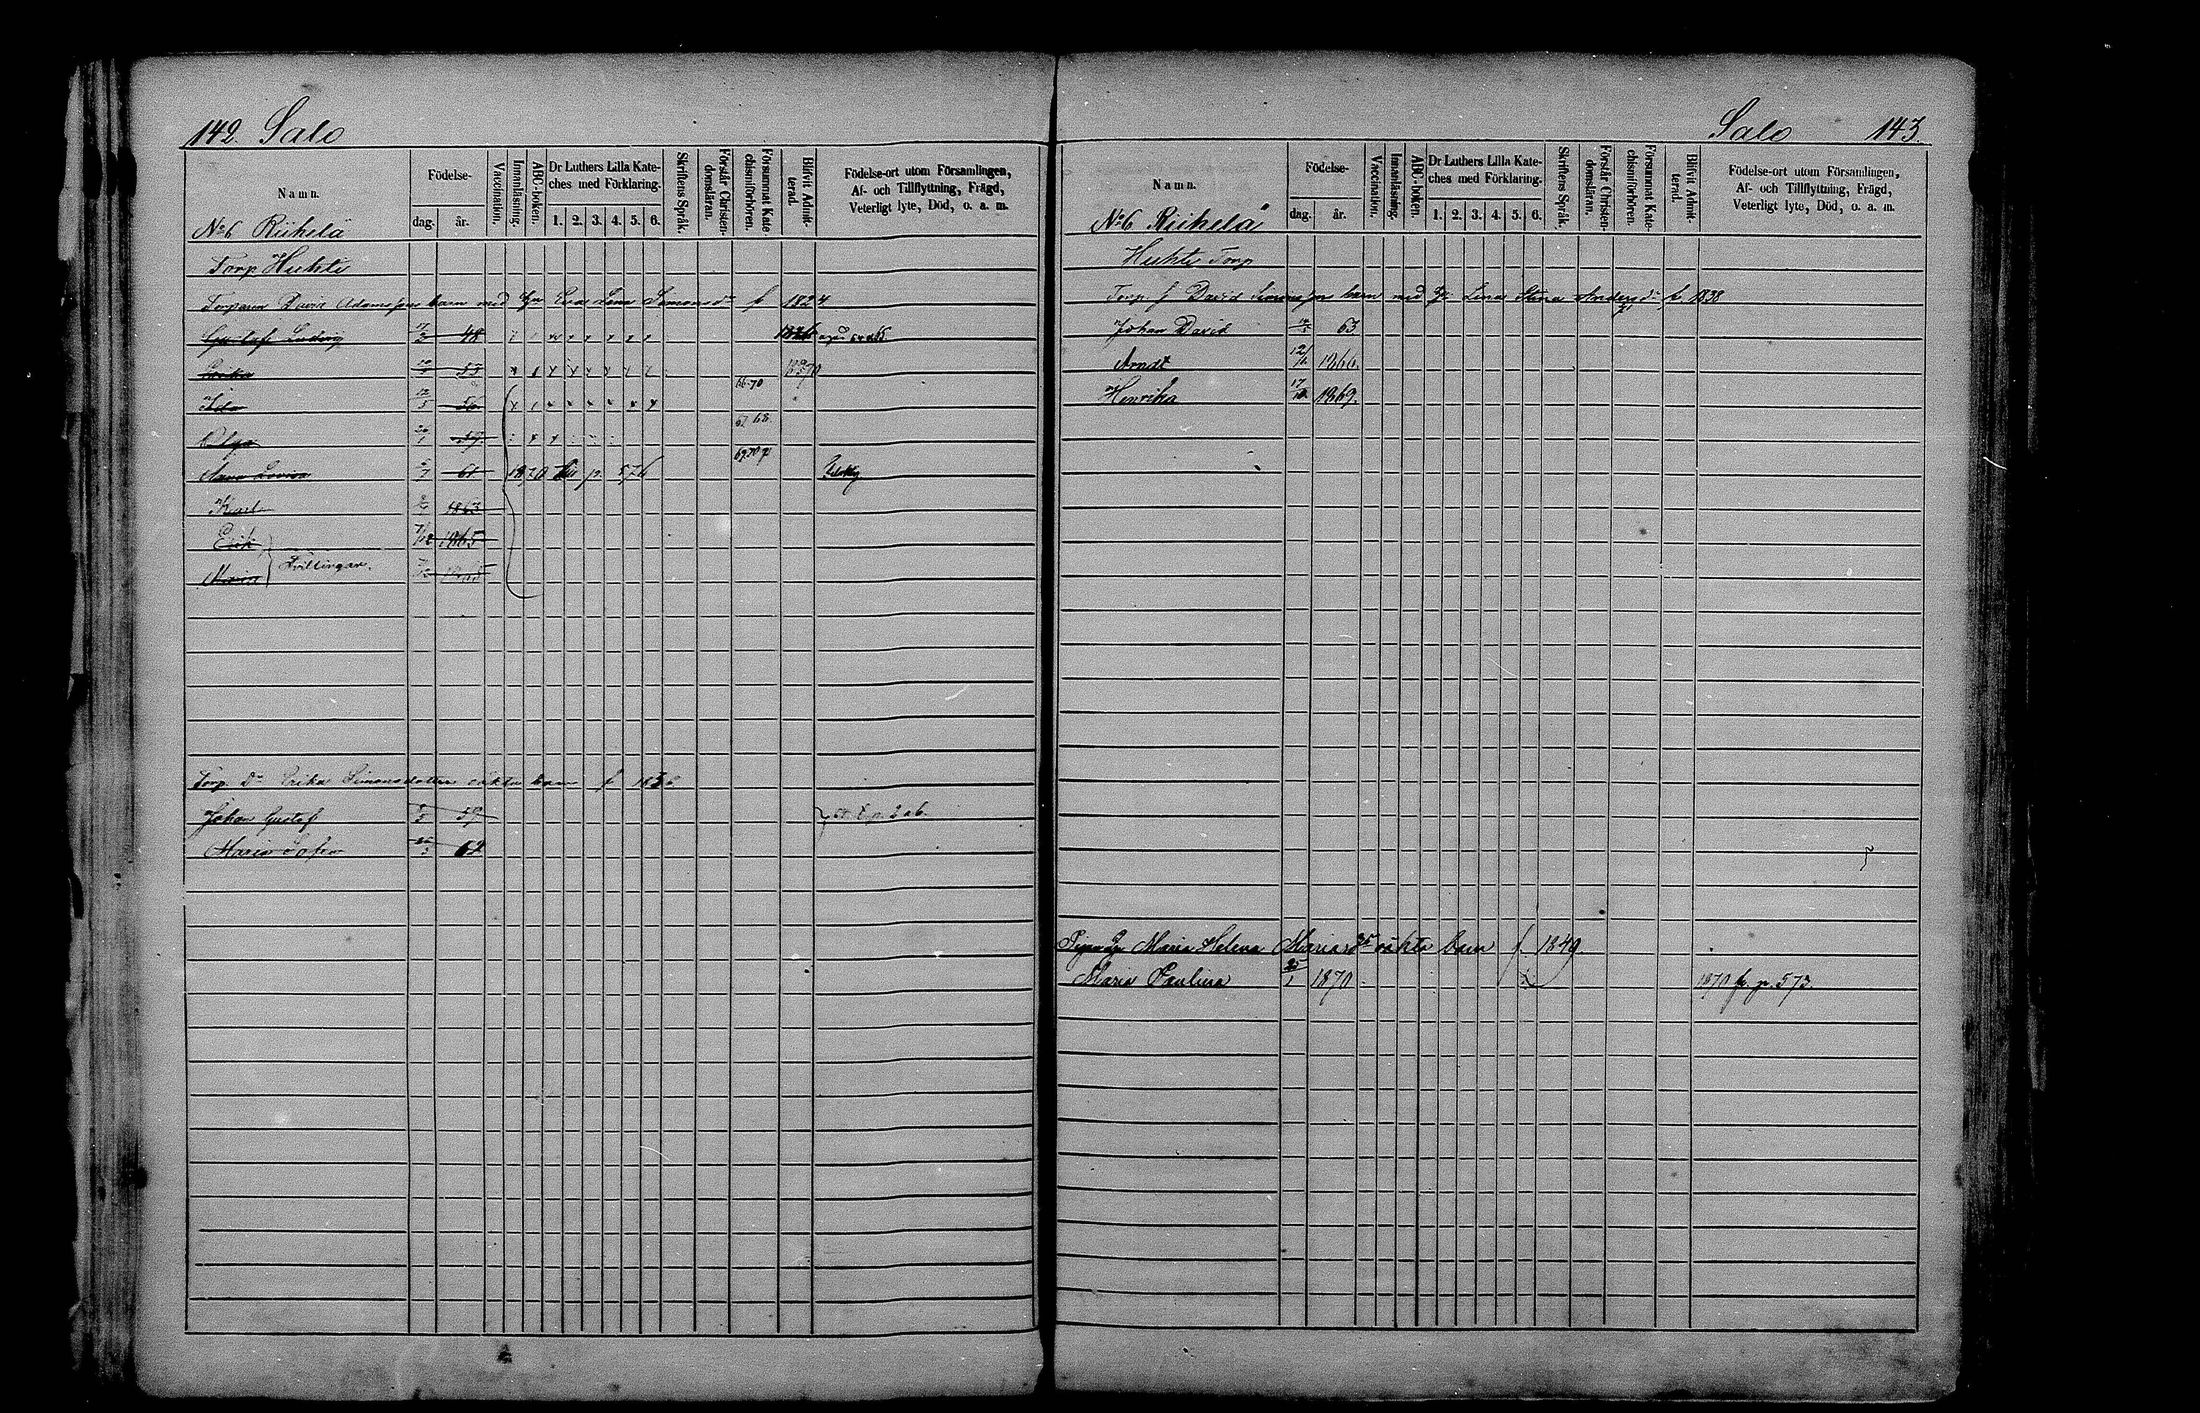 142 Salo
Namn.
Födelse-
dag. år.
Vaccination.
Innanläsning.
ABC-boken.
Dr Luthers Lilla Kate-
ches med Förklaring.
1. 2. 3. 4. 5. 6.
Skriftens Språk.
Förstår Christen-
domsläran.
Försummat Kate-
chismiförhören.
Blifvit Admit-
terad.
Födelse-ort utom Församlingen,
Af- och Tillflyttning, Frägd,
Veterligt lyte, Död, o. a. m.
No 6 Riihelä
Torp Huhti
Torparen David Adamssons barn med Hu Eva Lena Simonsdr f 1824
Gustaf Ludvig 48
53 1870
Ida 12/5 56 66-70
Olga 59 67 68
Anna Lovisa 61 1870 p. 576
Karl 1863
Erik 7/12 1865
Tvillingar.
Maria 7/12 1865
Torp. Dr Erika Simonsdotters oäkta barn f 1836
Johan Gustaf 59 p. 206.
Maria Sofia 62
Salo 143.
Namn.
Födelse-
dag. år.
Vaccination.
Innanläsning.
ABC-boken.
Dr Luthers Lilla Kate-
ches med Förklaring.
1. 2. 3. 4. 5. 6.
Skriftens Språk.
Förstår Christen-
domsläran.
Försummat Kate-
chismiförhören.
Blifvit Admit-
terad.
Födelse-ort utom Församlingen,
Af- och Tillflyttning, Frägd,
Veterligt lyte, Död, o. a. m.
No 6 Riihelä
Huhti Torp
Torp. f David Simonssons barn med Lena Stina Andersdr f. 1838
Johan David 63
Arndt 1866.
Henrika 17/10 1869.
Pigan Maria Helena Mariasdr oäkta barn f 1849.
Maria Paulina 25/1 1870 1870 fr. p. 573.